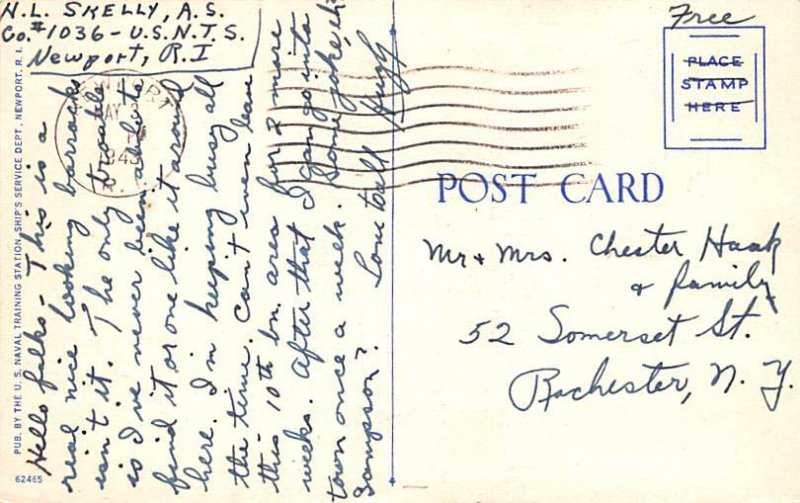 H.L. SKELLY, A.S.
Co.#1036 - U.S.N.T.S.
Newport, R.I
Free
PLACE
STAMP
HERE
POST CARD
Hello folks - This is a
real nice looking barracks
isn't it. The only trouble
is I've never been able to
find it or one like it around
here. I'm keeping busy all
the time. Can't even leave
this 10th bn. area for 2 more
weeks. After that I can go into
town once a week. Some joke, eh
Sampson?
Love to all
Hugh
Mr + Mrs. Chester Haak
+ family
52 Somerset St.
Rochester, N. Y.
PUB. BY THE U. S. NAVAL TRAINING STATION, SHIP'S SERVICE DEPT., NEWPORT, R. I.
62465